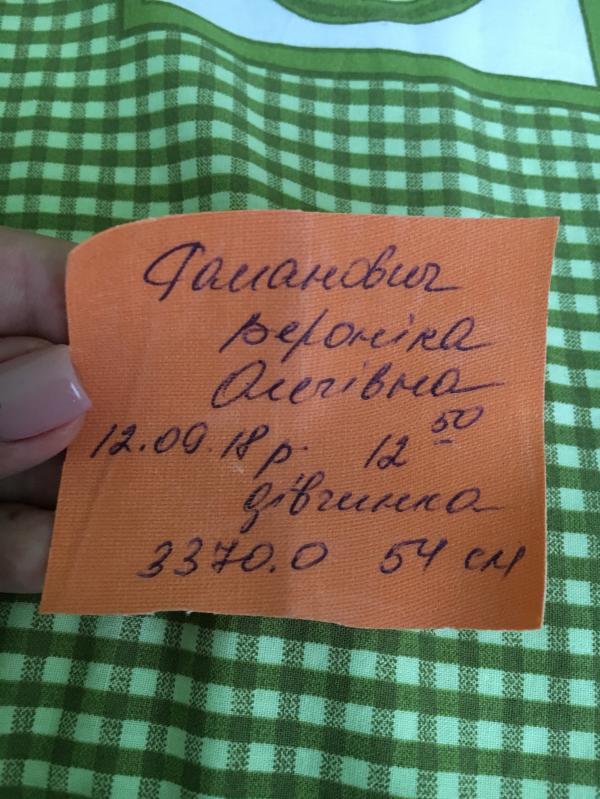 Гаманович
Вероніка
Олегівна
12.09.18р. 12 50
дівчинка
3370.0 54 см